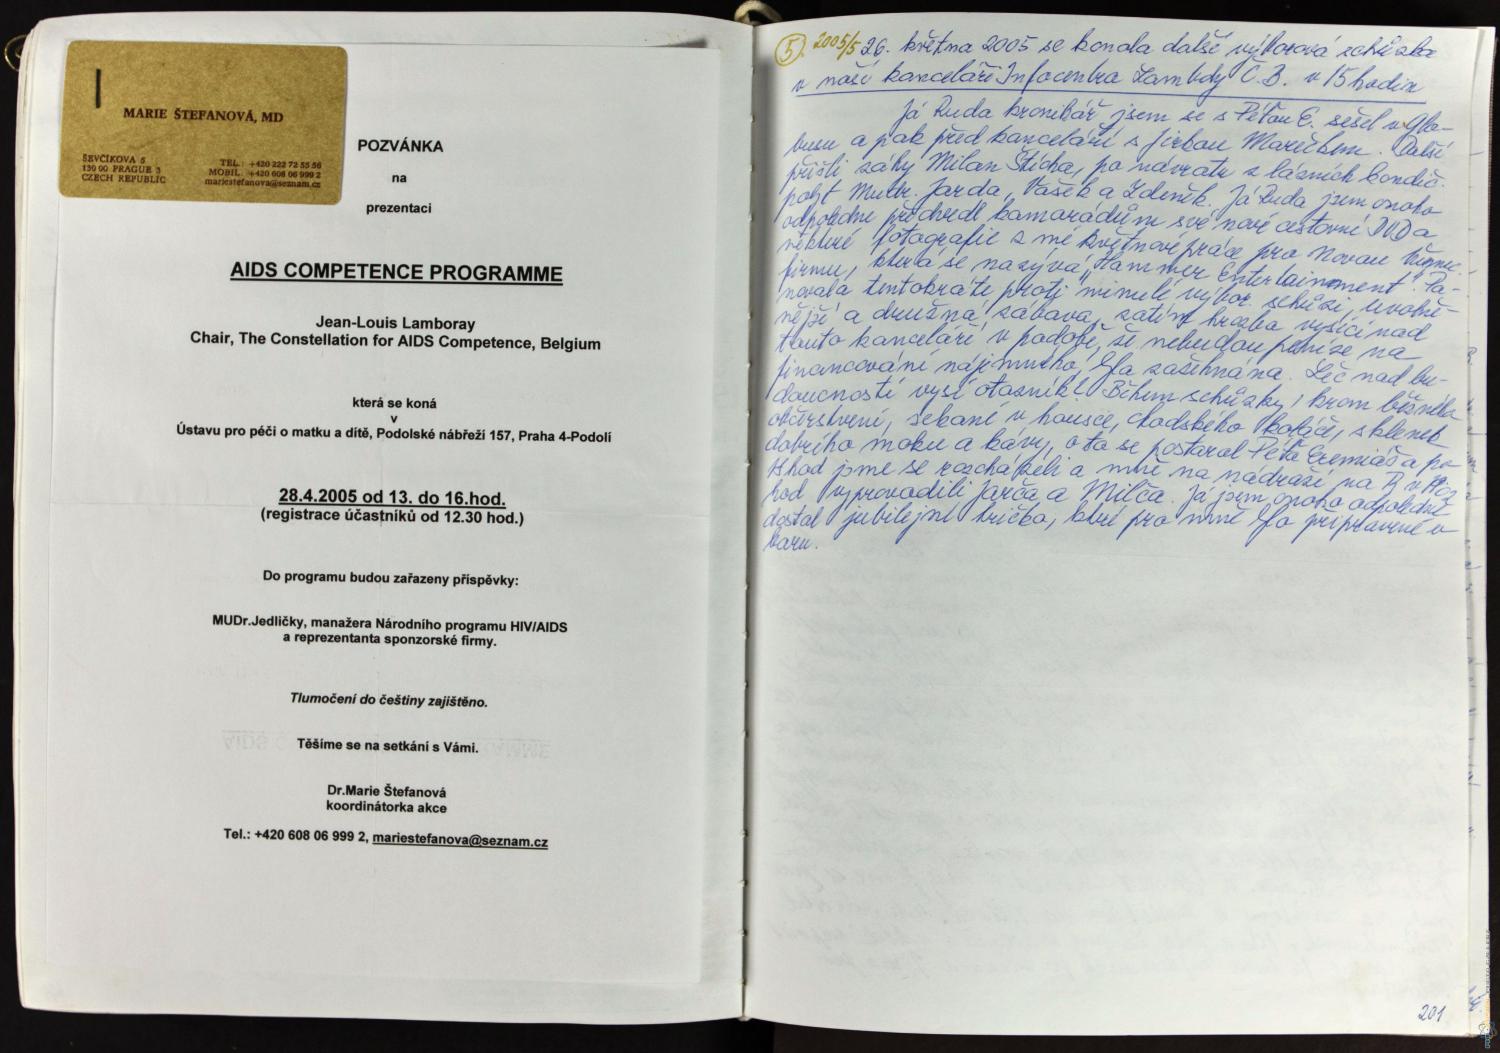 MARIE ŠTEFANOVÁ, MD
ŠEVČÍKOVA 5
130 00 PRAGUE 3
CZECH REPUBLIC
TEL.: +420 222 72 55 56
MOBIL. +420 608 06 999 2
mariestefanova@seznam.cz
POZVÁNKA
na
prezentaci
AIDS COMPETENCE PROGRAMME
Jean-Louis Lamboray
Chair, The Constellation for AIDS Competence, Belgium
která se koná
v
Ústavu pro péči o matku a dítě, Podolské nábřeží 157, Praha 4-Podolí
28.4.2005 od 13. do 16.hod.
(registrace účastníků od 12.30 hod.)
Do programu budou zařazeny příspěvky:
MUDr.Jedličky, manažera Národního programu HIV/AIDS
a reprezentanta sponzorské firmy.
Tlumočení do češtiny zajištěno.
Těšíme se na setkání s Vámi.
Dr.Marie Štefanová
koordinátorka akce
Tel.: +420 608 06 999 2, mariestefanova@seznam.cz
5. 2005/5 26. května 2005 se konala další výborová schůzka
v naší kanceláři Infocentra Lambdy Č.B. v 15 hodin
Já Ruda kronikář jsem se s Péťou E. sešel v Glo-
busu a pak před kanceláří s Jirkou Marečkem. Další
přišli záhy Milan Šticha, po návratu z lázních kondič.
pobyt Jarda, Vašek a Zdeněk. Já Ruda jsem onoho
odpoledne předvedl kamarádům své nové cestovní DVD a
některé fotografie z mé květnové práce pro novou
firmu, která se nazývá „Hammer Entertainment". Pa-
novala tentokráte proti minulé výbor. schůzi, uvolně-
nější a družná zábava, zatím hrozba visící nad
touto kanceláří v podobě, že nebudou peníze na
financování nájemného, zažehnána. Leč nad bu-
doucností visí otazník! Během schůzky, krom běžného
občerstvení, sekané v housce, chodského koláče, sklenek
dobrého moku a kávy, o to se postaral Péťa Eremiáš a po
hod jsme se rozcházeli a mně na nádraží na R v
hod vyprovodili Jarča a Milča. Já jsem onoho odpoledne
dostal jubilejní tričko, které pro mně připravené v
baru.
201